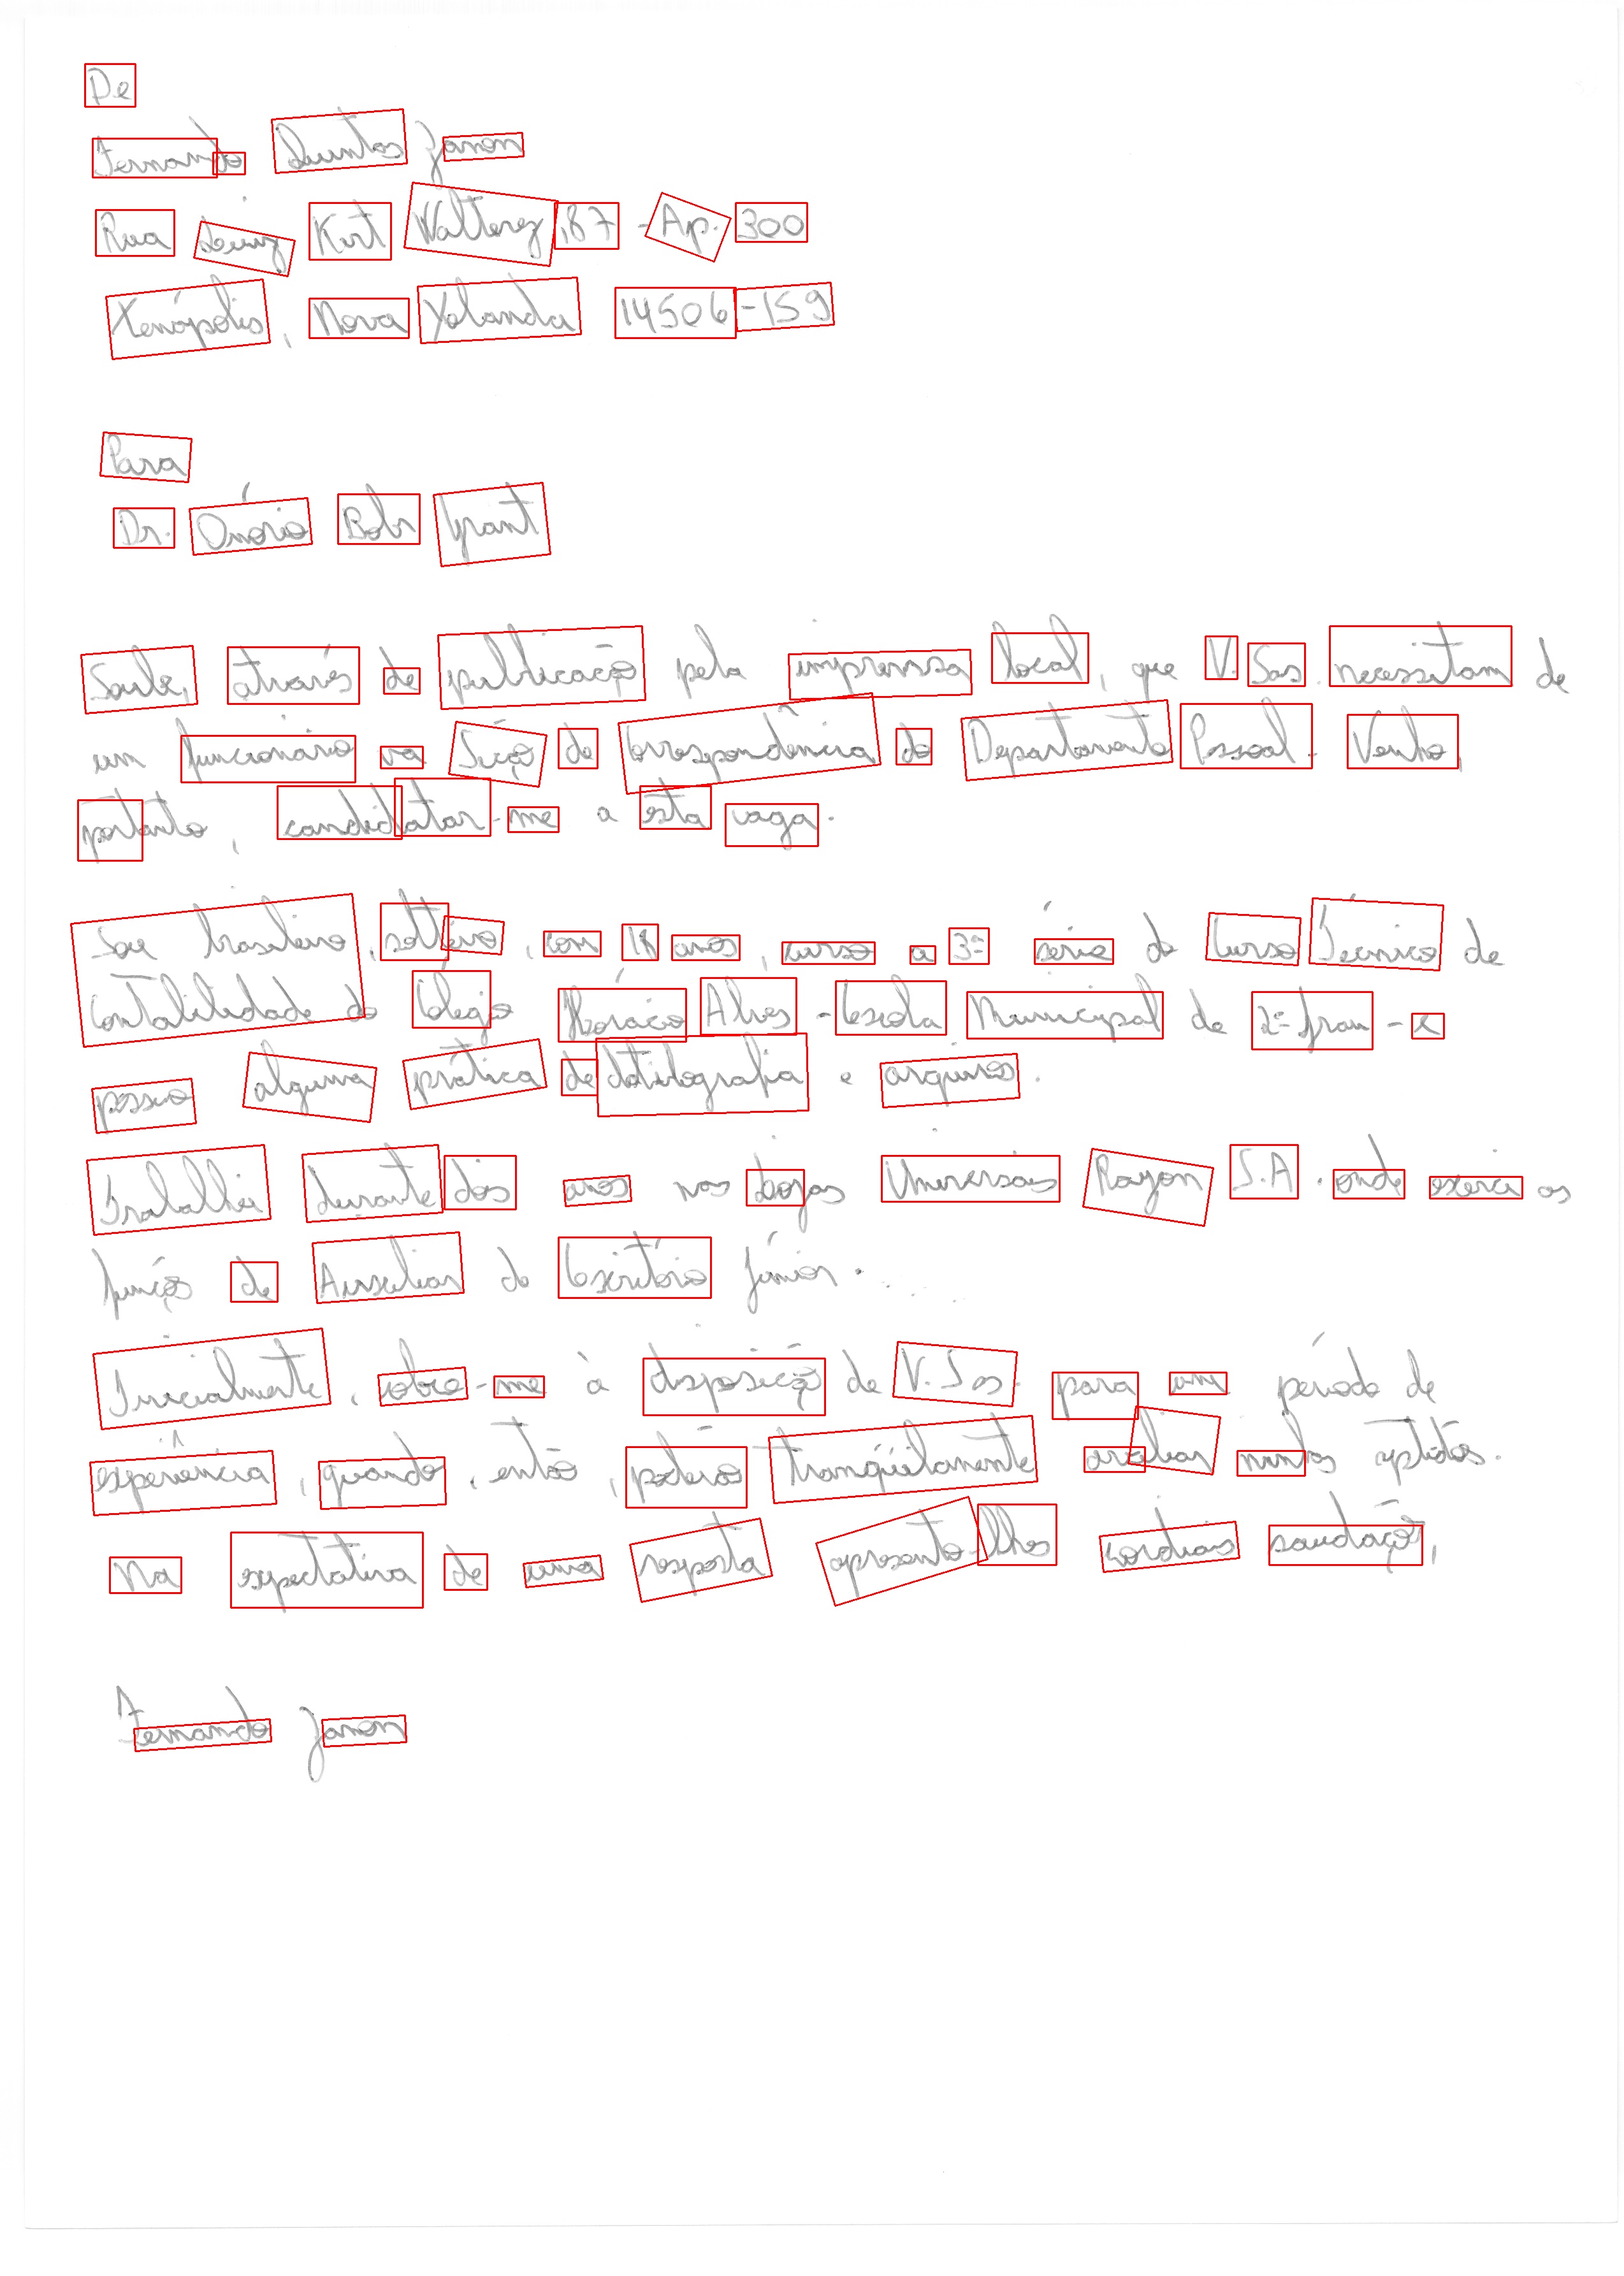 De
Fernando Quintos Zanon
Rua Luiz Kurt Walterez, 87 - Ap. 300
Xenópolis, Nova Yolanda 14506-159
Para
Dr. Onório Bohr Grant
Soube, através de publicação pela imprensa local, que V. Sas. necessitam de
um funcionário na Seção de Correspondência do Departamento Pessoal. Venho,
portanto, candidatar-me a esta vaga.
Sou brasileiro, solteiro, com 18 anos, curso a 3ª série do Curso Técnico de
Contabilidade do Colégio Horácio Alves - Escola Municipal de 2º Grau - e
possuo alguma prática de datilografia e arquivos.
Trabalhei durante dois anos nas Lojas Universais Rayon S.A. onde exerci as
função de Auxiliar de Escritório Júnior.
Inicialmente, coloco-me à disposição de V. Sas. para um período de
experiência, quando, então, poderão tranqüilamente avaliar minhas aptidões.
Na expectativa de uma resposta apresento-lhes cordiais saudações,
Fernando Zanon